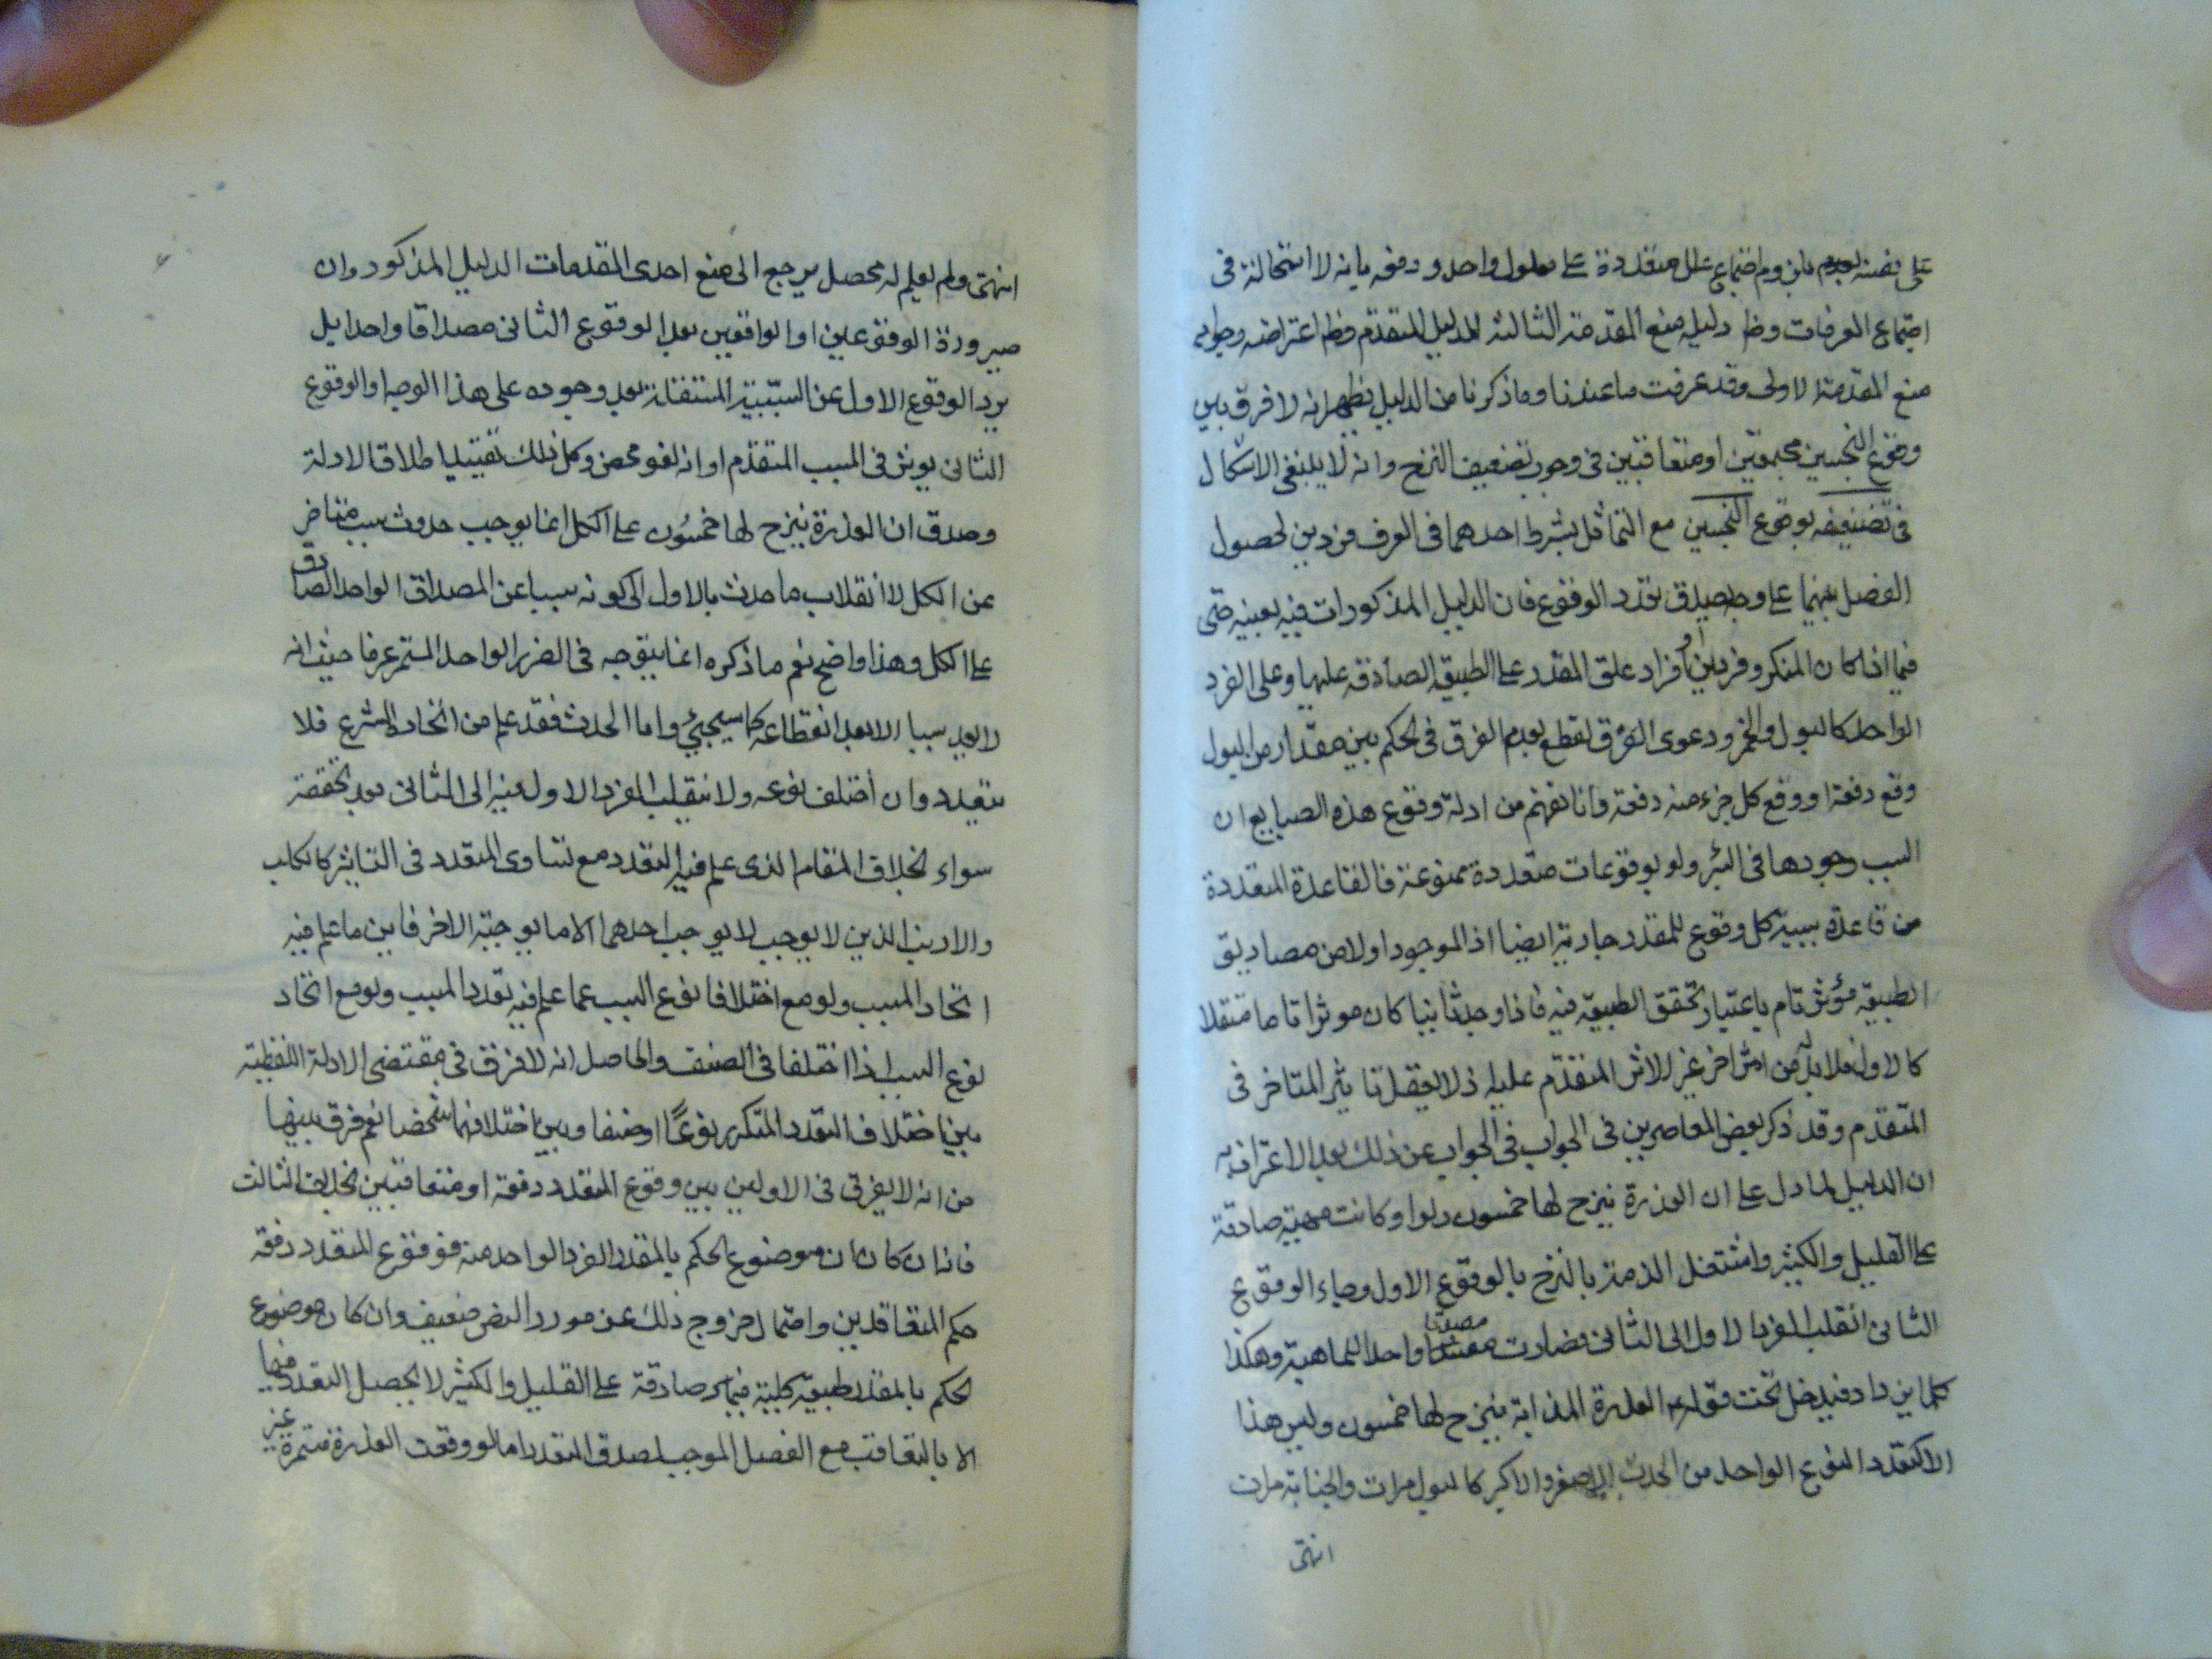 على نفسه لعدم بلزوم اجتماع علل متعددة على معلول واحد ودفعه بانه لا استحالة فى
اجتماع المعرفات وظ دليله منع المقدمة الثالثة للدليل المتقدم وظ اعتراضه وجوابه
منع المقدمة الاولى وقد عرفت ما عندنا وما ذكرنا من الدليل يظهر انه لا فرق بين
وقوع النجسين مجتمعين او متعاقبين فى وجوب تضعيف النزح وانه لا ينبغى الاشكال
فى تضعيفه بوقوع النجسين مع التماثل بشرط احدهما فى العرف فردين لحصول
الفصل بينهما على وجه يصدق تعدد الوقوع فان الدليل المذكور ات فيه بعينه حتى
فيما اذا كان المتكرر فردين او افراد علق المقدر على الطبيعة الصادقة عليها وعلى الفرد
الواحد كالبول والخمر ودعوى الفرق لقطع بعدم الفرق فى الحكم بين مقدار من البول
وقع دفعة او وقع كل جزء منه دفعة وانا نفهم من ادلة وقوع هذه الصبايع ان
السبب وجودها فى البئر ولو بوقوعات متعددة ممنوعة فالقاعدة المتعددة
من قاعدة سببية كل وقوع للمقدر جارية ايضا اذ الموجود اولا من مصاديق
الطبيعة مؤثر تام باعتبار تحقق الطبيعة فيه فاذا وجد ثانيا كان موثرا تاما مستقلا
كالاول فلا بد له من اثر اخر غير الاثر المتقدم عليه اذ لا يعقل تاثير المتاخر فى
المتقدم وقد ذكر بعض المعاصرين فى الجواب فى الجواب عن ذلك بعد الاعتراف به
ان الدليل لما دل على ان العذرة ينزح لها خمسون دلوا وكانت مهية صادقة
على القليل والكثير واشتغل الذمة بالنزح بالوقوع الاول وجاء الوقوع
الثانى انقلب الفرد الاول الى الثانى فصارت مصداقا واحدا للماهية وهكذا
كلما يزداد فيدخل تحت قوله العذرة المذابة ينزح لها خمسون وليس هذا
الا كتعدد النوع الواحد من الحدث الاصغر والاكبر كالبول مرات والجنابة مرات
انتهى
انتهى ولم يعلم له محصل يرجع الى منع احدى المقدمات الدليل المذكور وان
صيرورة الوقوعين او الواقعين بعد الوقوع الثانى مصداقا واحدا بل
يرد الوقوع الاول عن السببية المستقلة بعد وجوده على هذا الوجه او الوقوع
الثانى يوثر فى المسبب المتقدم او انه لغو محض وكل ذلك تقييد لاطلاق الادلة
وصدق ان العذرة ينزح لها خمسون على الكل انما يوجب حدوث سبب متاخر
عن الكل لا انقلاب ما حدث بالاول الى كونه سببا عن المصداق الواحد الصادق
على الكل وهذا واضح نعم ما ذكره انما يتوجه فى الفرد الواحد المستمر عرفا حيث انه
لا يعد سببا الا بعد انقطاعه كما سيجيئ واما الحدث فقد علم من اتحاده الشرع فلا
يتعدد وان اختلف نوعه ولا ينقلب الفرد الاول منه الى الثانى بعد تحققه
سواء بخلاف المقام الذى علم فيه التعدد مع تساوى المتعدد فى التاثير كالكلب
والارنب الذين لا يوجب لا يوجب احدهما الا ما يوجبه الاخر فاين ما علم فيه
اتحاد المسبب ولو مع اختلاف نوع السبب عما علم فيه تعدد المسبب ولو مع اتحاد
نوع السبب اذا اختلفا فى الصنف والحاصل انه لا فرق فى مقتضى الادلة اللفظية
بين اختلاف المتعدد المتكرر نوعًا او صنفا وبين اختلافهما شخصا نعم فرق بينها
من انه لا يفرق فى الاولين بين وقوع المتعدد دفعة او متعاقبين بخلاف الثالث
فانه ان كان موضوع الحكم بالمقدر الفرد الواحد منه فوقوع المتعدد دفعة
حكم المتعاقدين واحتمال خروج ذلك عن مورد النص ضعيف وان كان موضوع
الحكم بالمقدر طبيعة كلية فيها صادقة على القليل والكثير لا يحصل التعدد فيها
الا بالتعاقب مع الفصل الموجب لصدق التعدد اما لو وقعت العذرة مستمرة غير